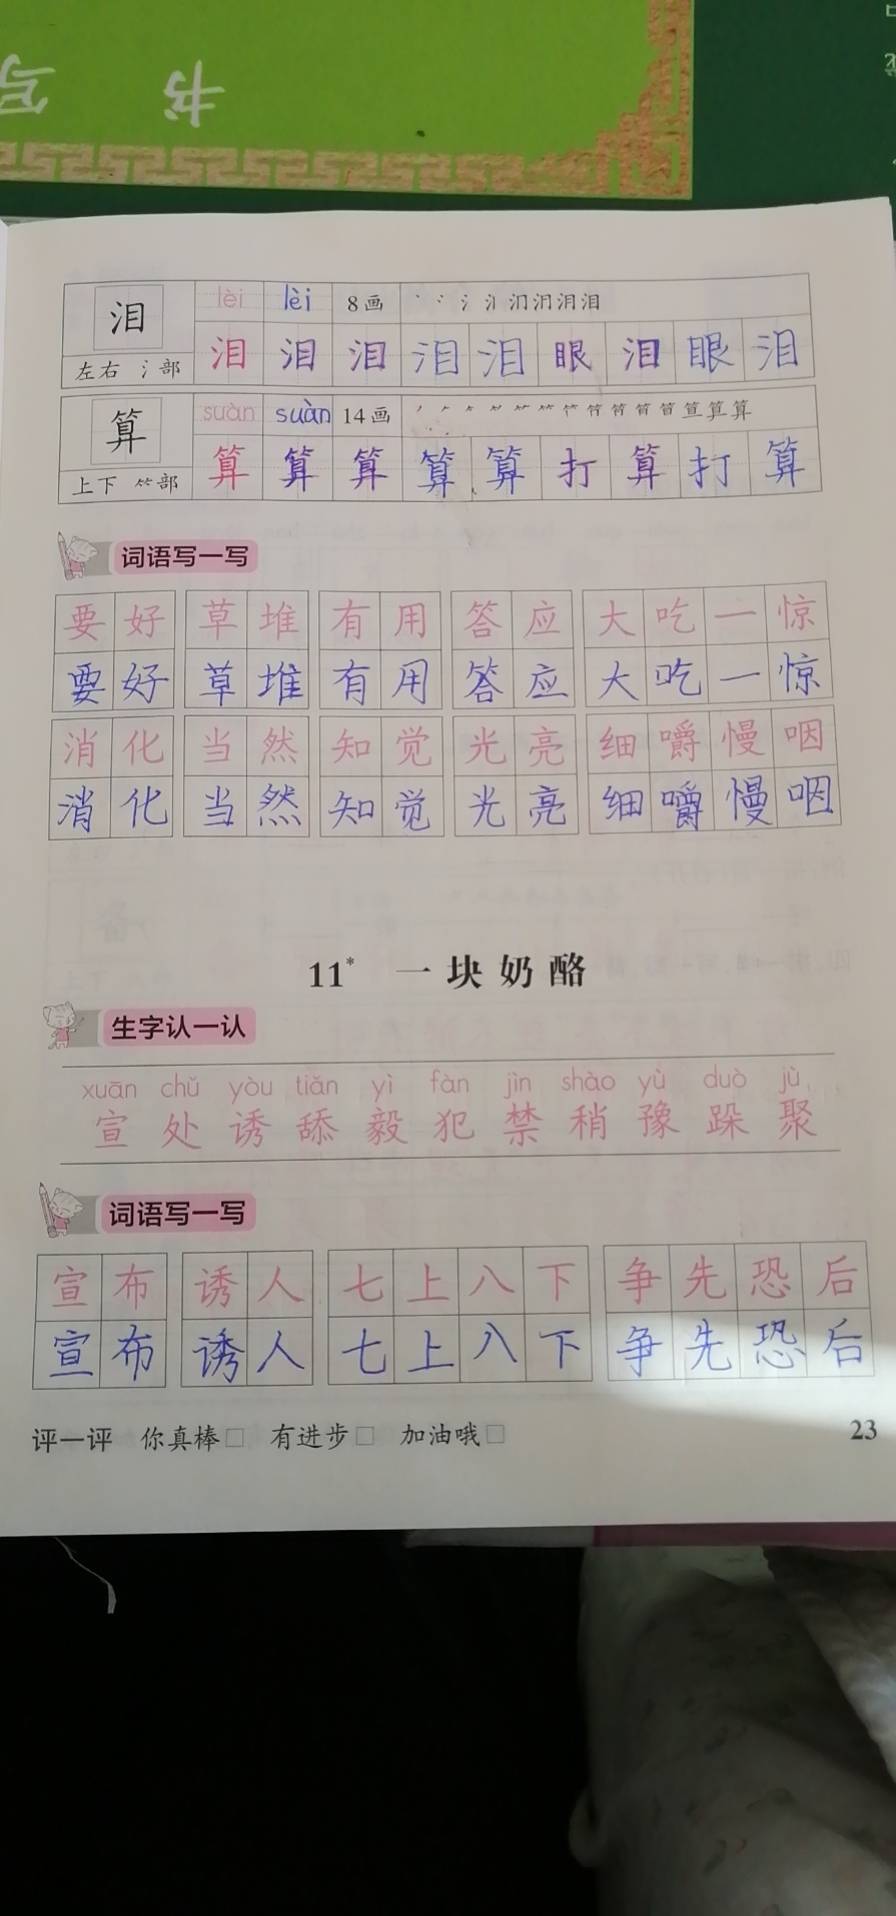 书写
泪 lèi lèi 8画 丶 冫 氵 汩 泪
左右 氵部 泪 泪 泪 泪 泪 眼 泪 眼 泪
算 suàn suàn 14画
上下 ⺮部 算 算 算 算 算 打 算 打 算
词语写一写
要好 草堆 有用 答应 大吃一惊
要好 草堆 有用 答应 大吃一惊
消化 当然 知觉 光亮 细嚼慢咽
消化 当然 知觉 光亮 细嚼慢咽
11* 一块奶酪
生字认一认
xuān chǔ yòu tiǎn yì fàn jìn shào yù duò jù
宣 处 诱 舔 毅 犯 禁 稍 豫 跺 聚
词语写一写
宣布 诱人 七上八下 争先恐后
宣布 诱人 七上八下 争先恐后
评一评 你真棒□ 有进步□ 加油哦□
23